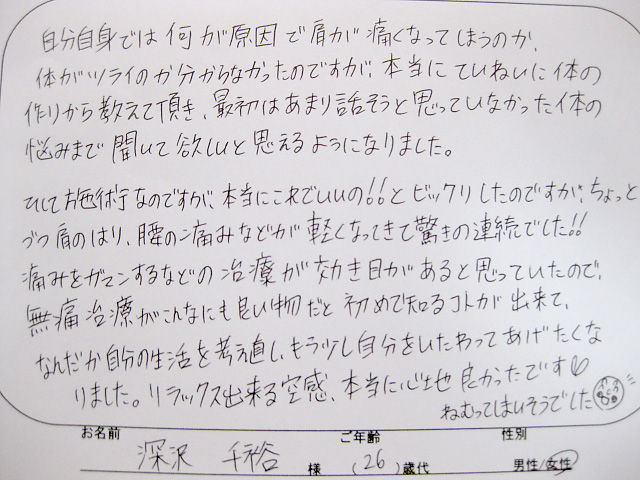 自分自身では何が原因で肩が痛くなってしまうのか、
体がツライのか分からなかったのですが、本当にていねいに体の
作りから教えて頂き、最初はあまり話そうと思っていなかった体の
悩みまで聞いて欲しいと思えるようになりました。
そしてお施術なのですが、本当にこれでいいの!!とビックリしたのですが、ちょっと
づつ肩のはり、腰の痛みなどが軽くなってきて驚きの連続でした!!
痛みをガマンするなどの治療が効き目があると思っていたので、
無痛治療がこんなにも良い物だと初めて知るコトが出来て、
なんだか自分の生活を考え直し、もう少し自分をいたわってあげたくな
りました。リラックス出来る空感、本当に心地良かったです♡
ねむってしまいそうでした
お名前 ご年齢 性別
深沢 千裕 様 (26)歳代 男性/女性